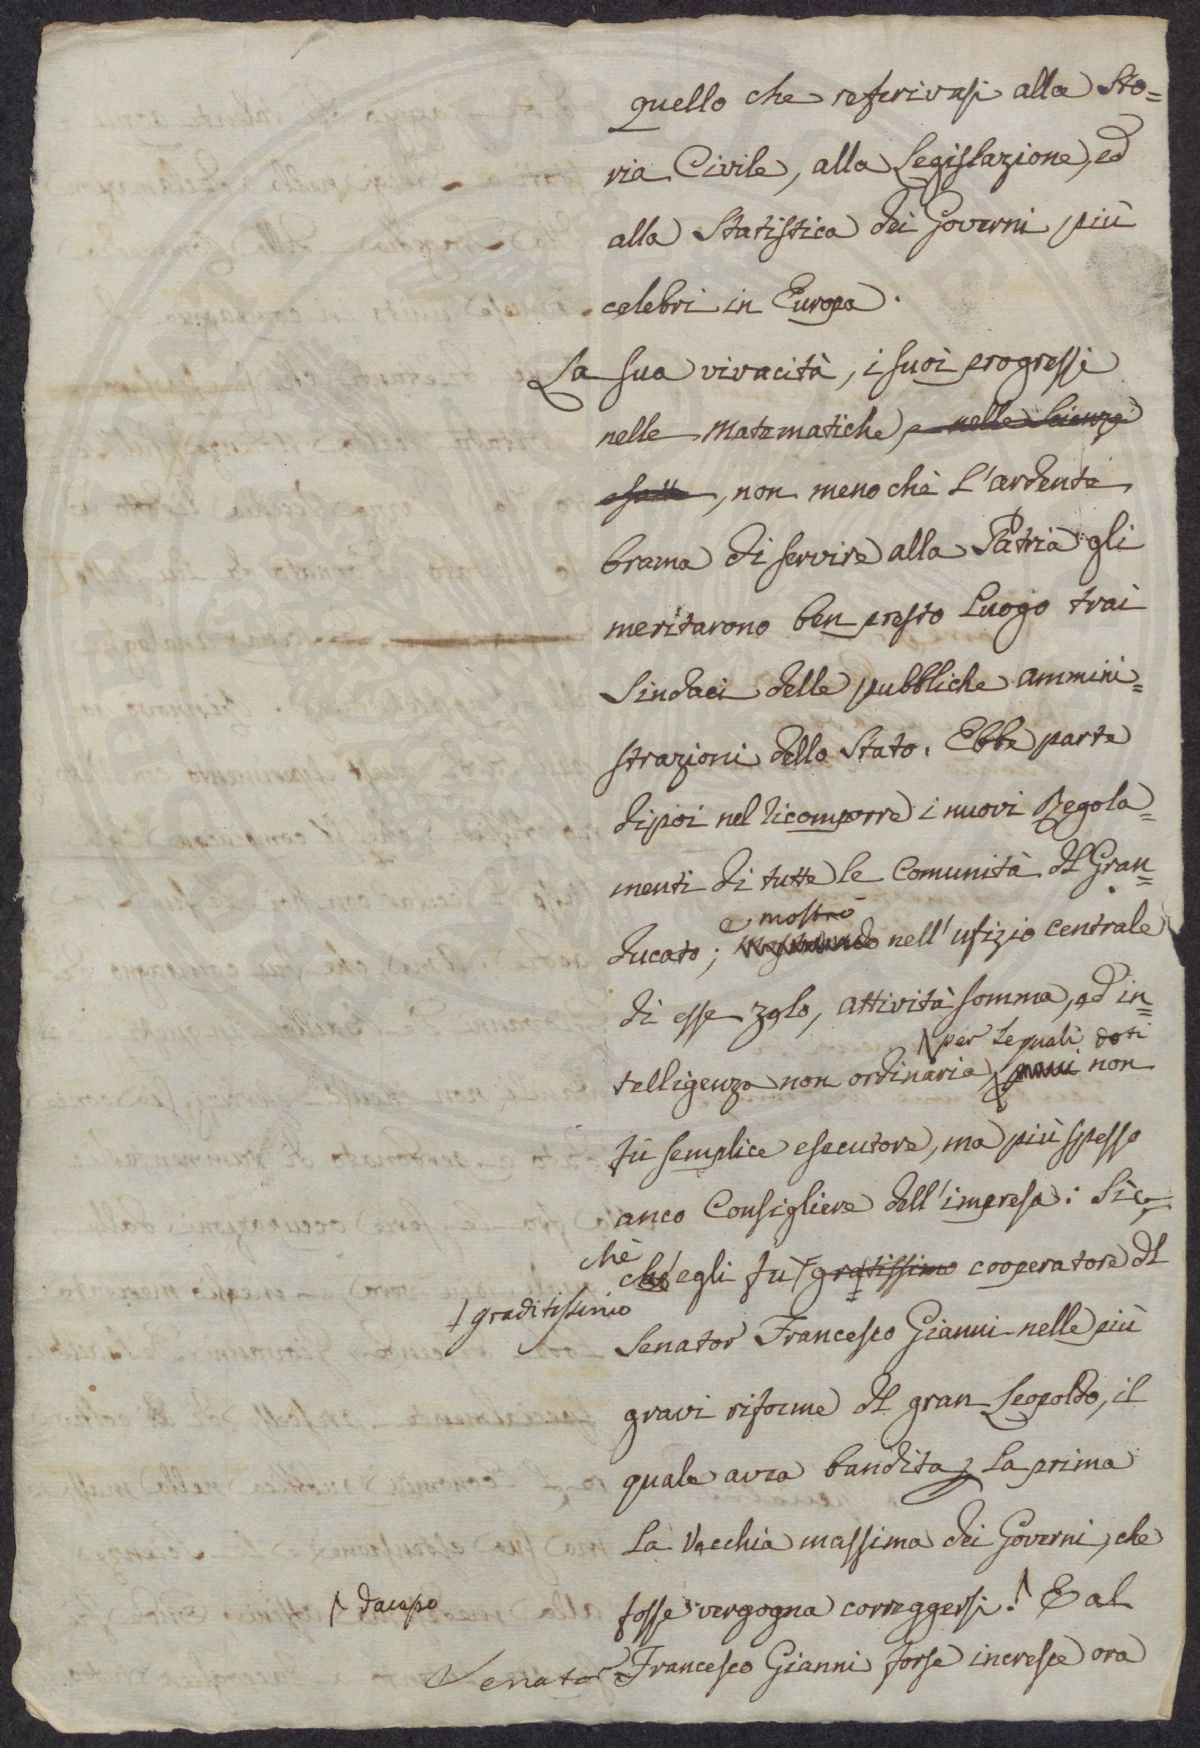 quello che referivasi alla Sto=
ria Civile, alla Legislazione, ed
alla Statistica dei Governi più
celebri in Europa.
La sua vivacità, i suoi progressi
nelle Matematiche, e nelle Scienze
esatte, non meno che l'ardente
brama di servire alla Patria gli
meritarono ben presto luogo trai
Sindaci delle pubbliche ammini=
strazioni dello Stato. Ebbe parte
dipoi nel ricomporre i nuovi Regola=
menti di tutte le Comunità del Gran=
e mostrò
ducato; mostrando nell'ufizio centrale
di esse zelo, attività somma, ed in=
per le quali doti
telligenza non ordinaria, non
fù semplice esecutore, ma più spesso
anco Consigliere dell'impresa: Sic=
chè
ch'egli fu gratissimo cooperatore del
graditissimo
Senator Francesco Gianni nelle più
gravi riforme del gran Leopoldo, il
quale avea bandita la prima
la vecchia massima dei Governi, che
fosse vergogna correggersi! E al
dacapo
Senator Francesco Gianni forse incresce ora